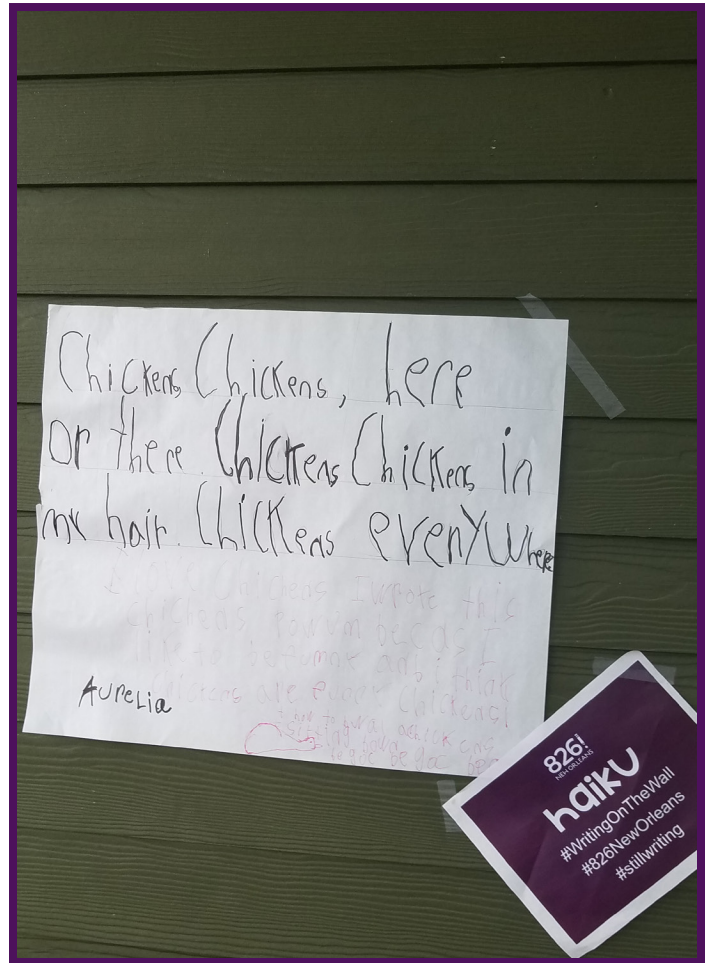 Chickens Chickens, here
or there. Chickens Chickens in
my hair. Chickens everywhere
Chickens I wrote this
chickens powum becaus I
like to be funny and I think
chickens are
Chickens!
AureLia
826!
NEW ORLEANS
haiku
#WritingOnTheWall
#826NewOrleans
#stillwriting